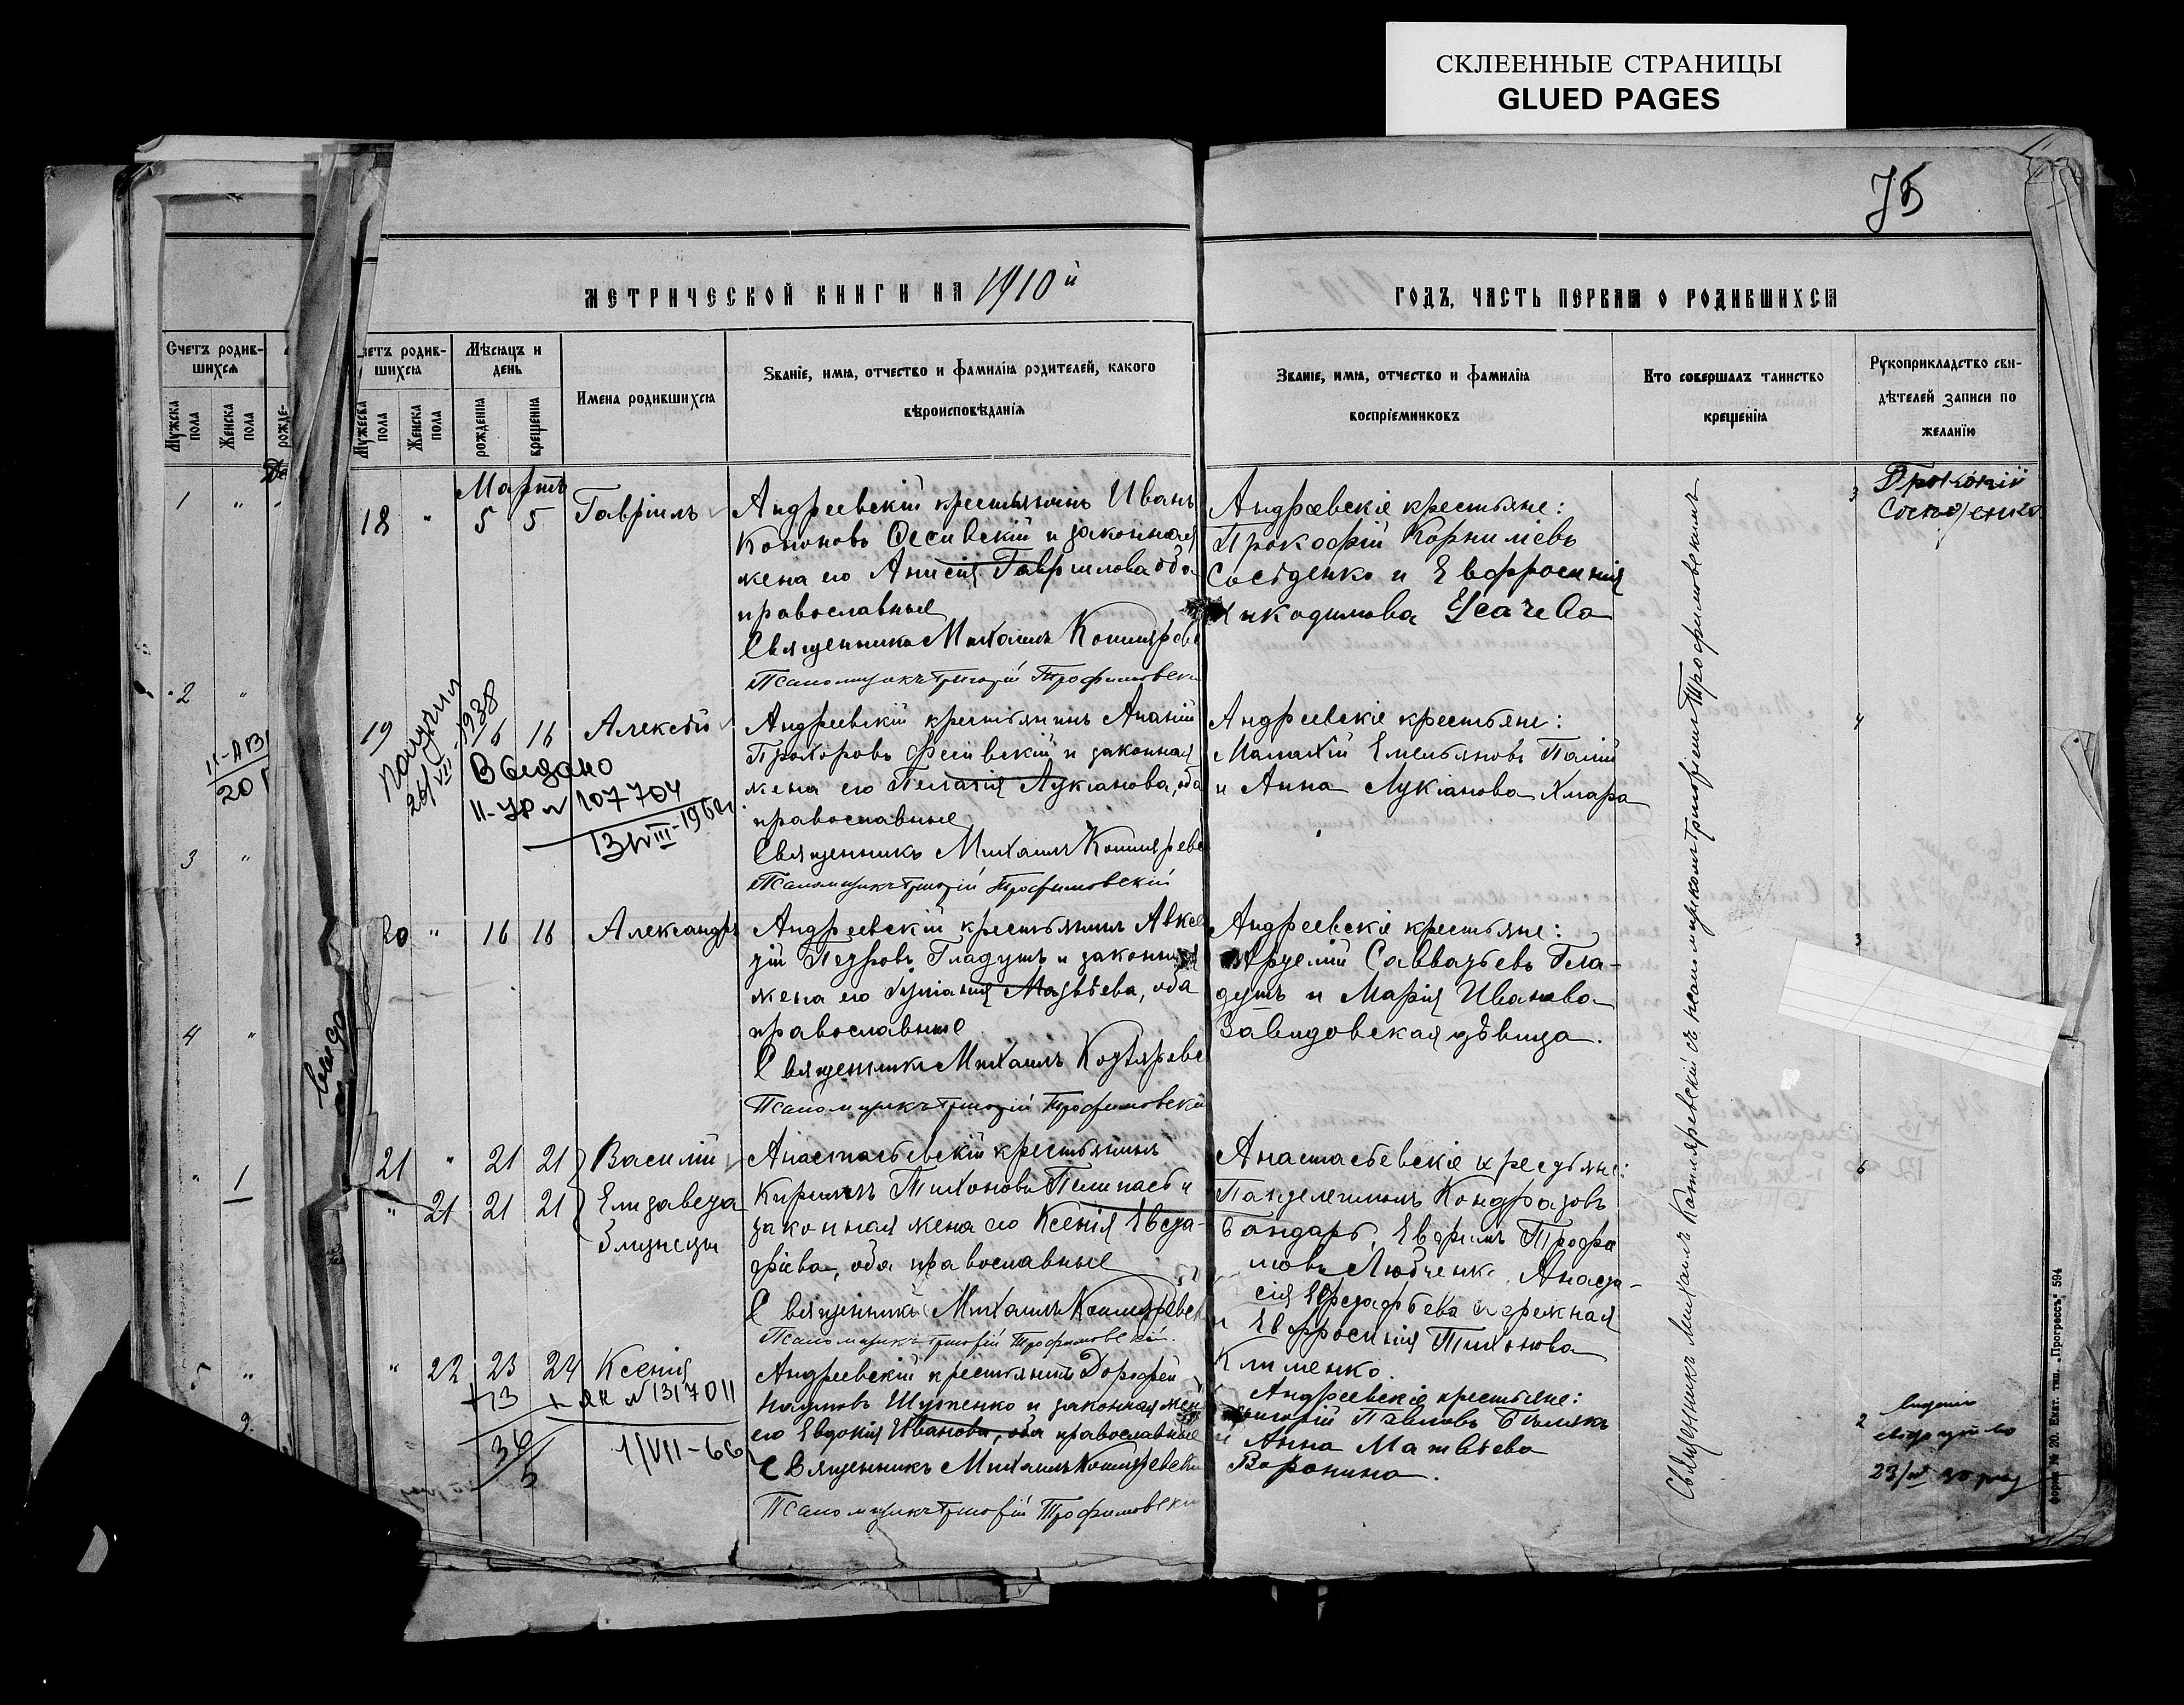 СКЛЕЕННЫЕ СТРАНИЦЫ
GLUED PAGES
75
МЕТРИЧЕСКОЙ КНИГИ НА 1910 й
ГОДЪ, ЧАСТЬ ПЕРВАЯ О РОДИВШИХСЯ
Счетъ родив-
шихся
Мужска пола
Женска пола
рожде-
етъ родив-
шихся
Мужеска пола
Женска пола
Мѣсяцъ и
день
рожденія
крещенія
Имена родившихся
Званіе, имя, отчество и фамилія родителей, какого
вѣроисповѣданія
Званіе, имя, отчество и фамилія
воспріемниковъ
Кто совершалъ таинство
крещенія
Рукоприкладство сви-
дѣтелей записи по
желанію
1 "
2 "
20
3 "
4 "
" 1
5 "
Мартъ
18 " 5 5 Гавріилъ
Андреевскій крестьянинъ Иванъ
Кононовъ Фесивскій и законная
жена его Анисія Гаврилова оба
православные
Священникъ Михаилъ Котляревс
Псаломщикъ Григорій Трофимовски
Андреевскіе крестьяне:
Прокофій Корниліевъ
Сосѣденко и Евфросинія
Никодимова Усачева
3
Прокофій
Соседенко
19 16 Алексѣй
получил
26/VIII-1938
Выдано
II-УР № 107704
13/VIII-1960г
Андреевскій крестьянинъ Ананій
Прохоровъ Фесивскій и законная
жена его Пелагія Лукіанова, оба
православные
Священникъ Михаилъ Котляревс
Псаломщикъ Григорій Трофимовскій
Андреевскіе крестьяне:
Малахій Емельяновъ Палій
и Анна Лукіанова Хмара
4
20 " 16 16 Александръ
Андреевскій крестьянинъ Авксе
тій Петровъ Гладушъ и законная
жена его Іуліанія Матвѣева, оба
православные
Священникъ Михаилъ Котляревс
Псаломщикъ Григорій Трофимовскій
Андреевскіе крестьяне:
Савватѣевъ Гла-
душъ и Марія Иванова
Завидовская дѣвица.
3
21 " 21 21 Василій
" 21 21 21 Елизавета
близнецы
Анастасьевскій крестьянинъ
Кириллъ Тихоновъ Пелипасъ и
законная жена его Ксенія Евста-
фіева, оба православные
Священникъ Михаилъ Котляревс
Псаломщикъ Григорій Трофимовскій.
Анастасьевскіе крестьяне:
Пантелеимонъ Кондратовъ
Бондарь, Ефимъ Трофи
мовъ Любченко, Анаста-
сія Евстафьева
и Евфросинія Тихонова
Клименко.
" 22 23 24 Ксенія
+13 + ЯК № 1317011
36
5
1/VII-66
Андреевскій крестьянинъ Дорофей
Наумовъ Шутенко и законная жена
его Евдокія Иванова, оба православные
Священникъ Михаилъ Котляревски
Псаломщикъ Григорій Трофимовски
Андреевскіе крестьяне:
Григорій Павловъ Бѣлякъ
и Анна Матвѣева
Воронина.
2
23/IV 30
Священникъ Михаилъ Котляревскій съ псаломщикомъ Григоріемъ Трофимовскимъ
форма № 20. Екат. тип. „Прогрессъ“ 594